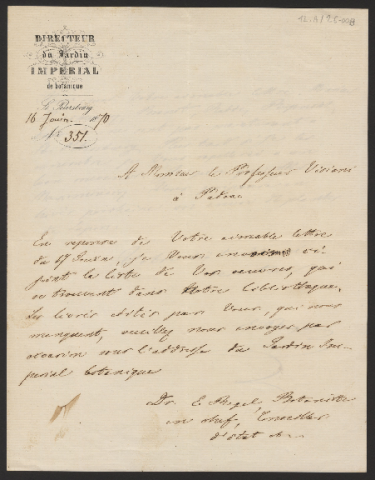 DIRECTEUR
du Jardin
IMPERIAL
de botanique
16 Juin 1870
№ 351.
A Monsieur le Professeur Visiani
à Padoue
En reponse de Votre aimable lettre
du Juin, je Vous
joint la liste de Vos oeuvres, qui
se trouvent dans Notre bibliotheque.
Les livres édités par Vous, qui nous
manquent, veuillez nous envoyer par
occasion sur l'addresse du Jardin Im-
perial botanique
Dr. E. Regel Botaniste
en chef, Conseiller
d'état